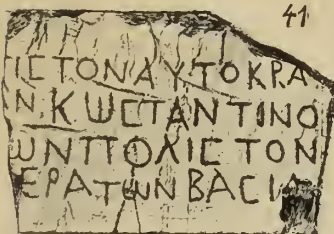 41
ΙСΤΟΝΑΥΤΟΚΡΑ
Ν ΚωСΤΑΝΤΙΝΟ
ωΝΠΟΛΙСΤΟΝ
ΕΡΑΤωΝΒΑСΙΛ